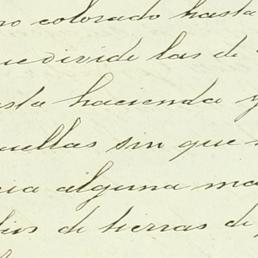 no colorado hasta
ue divide las de
sta hacienda y
uellas sin que
cia alguna ma
bios de tierras de